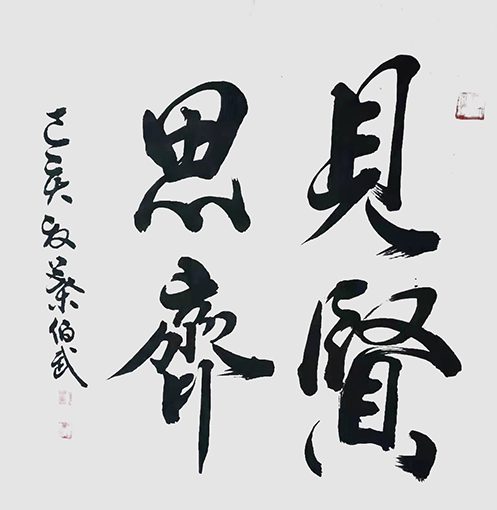 見賢
思齊
己亥秋蔡伯武